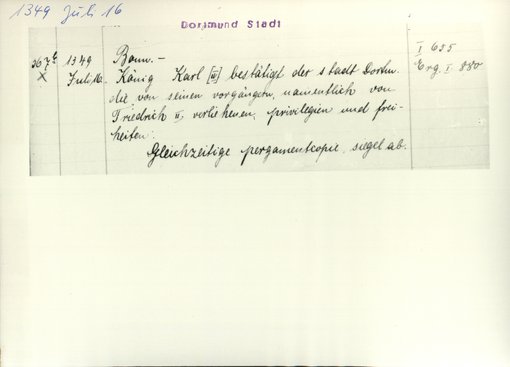 1349 Juli 16
Dortmund Stadt
367b 1349 Bonn.— I 685
X Juli 16. König Karl [IV] bestätigt der stadt Dortm. Erg. I 880
die von seinen vorgängern, namentlich von
Friedrich II, verliehenen, privilegien und frei-
heiten.
Gleichzeitige pergamentcopie, siegel ab.